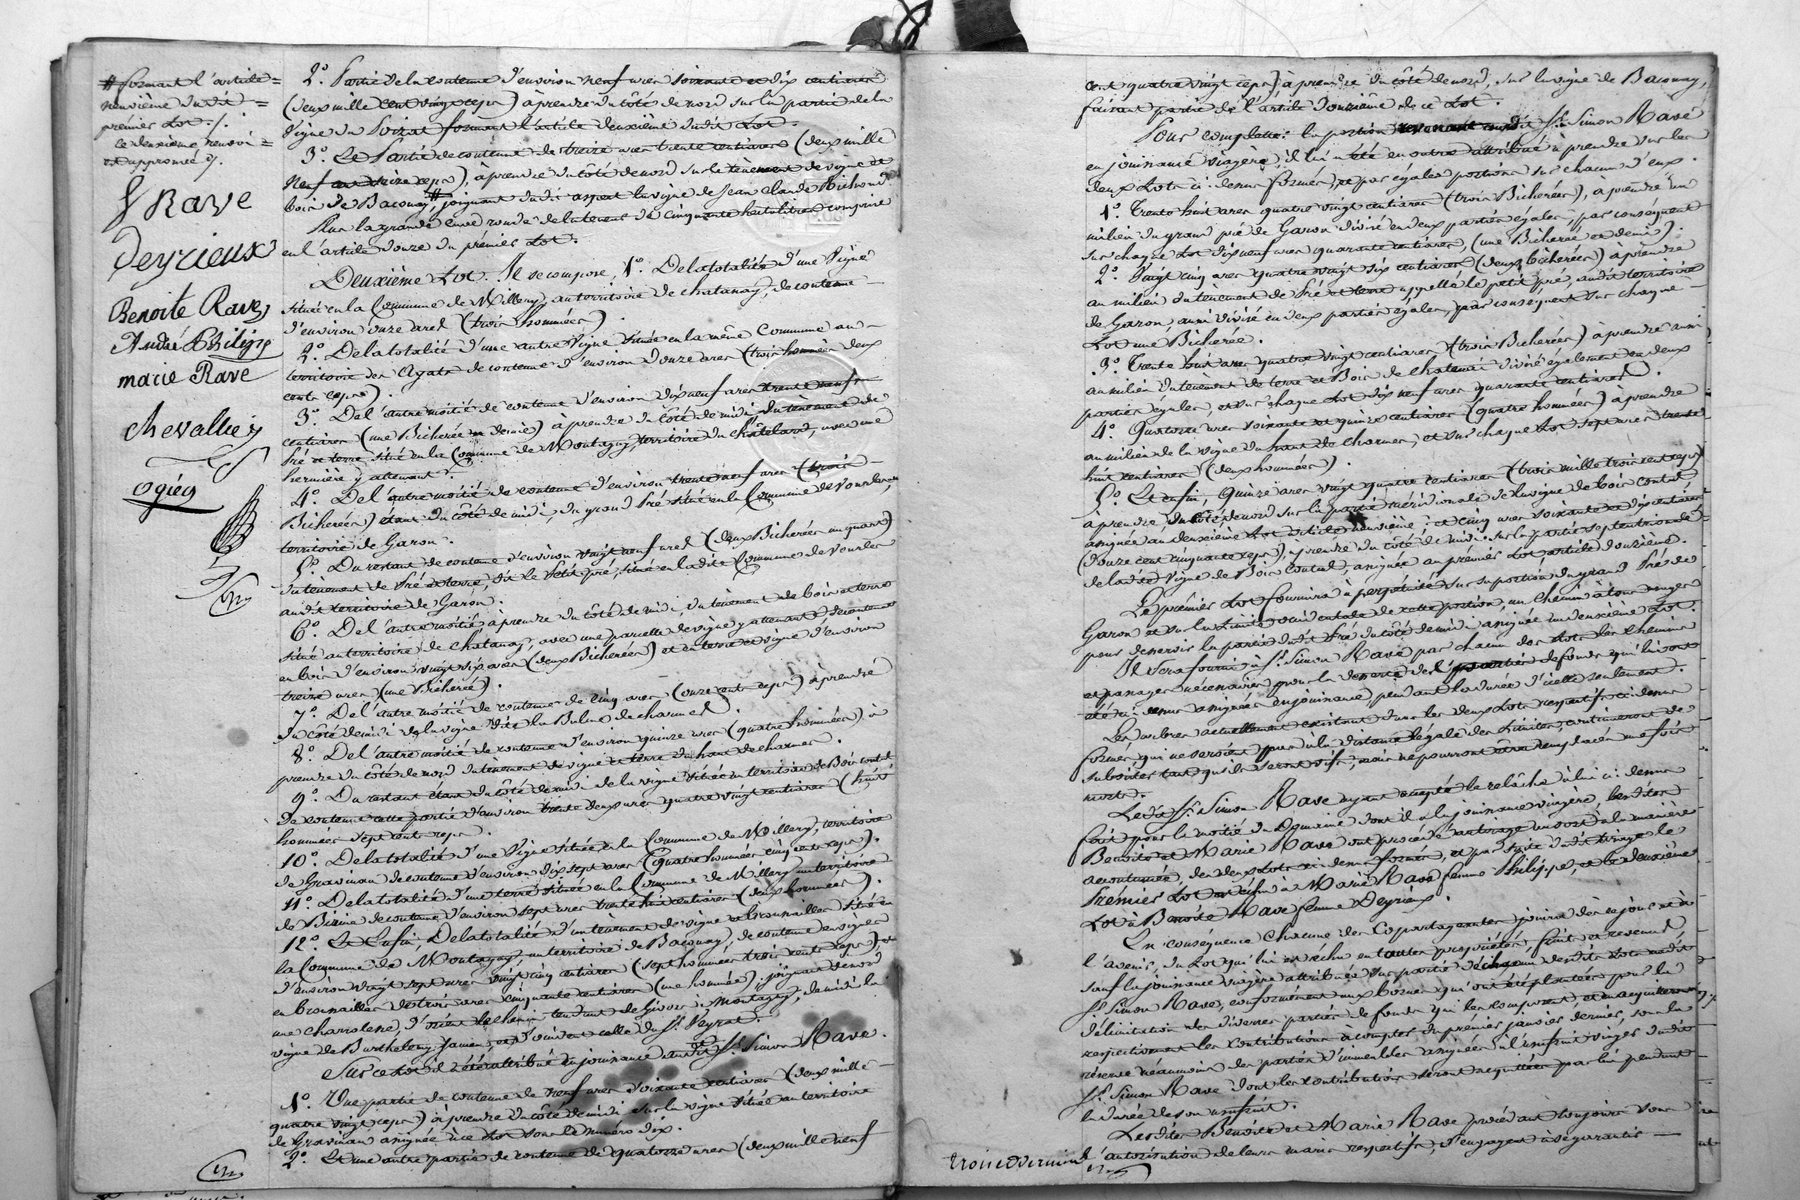 # formant l'article =
neuvième dudit =
premier Lot ./.
Le deuxième renvoi =
est approuvé ./.
f Rave
Deyrieux
Benoite Rave
André Philippe
marie Rave
chevallier
ogier
2.° Partie de la contenue d'environ neuf ares soixante et dix centiares
(deux mille cent vingt ceps) à prendre du côté de nord sur la partie de la
vigne du Poizat formant l'article deuxième dudit Lot.
3.° La Partie de contenue de treize ares trente centiares (deux mille
neuf cent treize ceps), à prendre du côté de nord sur le tènement de vigne et
bois de Bacouny, # joignant dudit aspect la vigne de Jean Claude Bichond
Plus la grande cuve ronde de la teneur de cinquante hectolitres comprise
en l'article douze du premier Lot.
Deuxième Lot. Il se compose, 1.° De la totalité d'une Vigne
située en la Commune de Millery, au territoire de chatanay, de contenue
d'environ onze ares (trois hommées).
2.° De la totalité d'une autre vigne située en la même Commune au
territoire des Agats de contenue d'environ douze ares (trois hommées deux
cents ceps).
3.° De l'autre moitié de contenue d'environ dix neuf ares trente neuf
centiares (une Bicherée et demie) à prendre du côté de midi du tènement de
Pré et terre, situé en la Commune de Montagny, territoire du châtelard, avec une
hermière y attenant.
4.° De l'autre moitié de contenue d'environ trente neuf ares (trois
Bicherées) étant du côté de midi, du grand Pré situé en la Commune de Vourles,
territoire de Garon.
5.° Du restant de contenue d'environ vingt neuf ares (deux Bicherées un quart)
du tènement de Pré et terre, dit le Petit pré, situé en la dite Commune de Vourles
audit territoire de Garon.
6.° De l'autre moitié à prendre du côté de midi, du tènement de bois et terre
situé au territoire de chatanay, avec une parcelle de vigne y attenant, de contenue
en bois d'environ vingt six ares (deux Bicherées) et en terre et vigne d'environ
treize ares (une Bicherée).
7.° De l'autre moitié de contenue de cinq ares (onze cents ceps) à prendre
du côté de midi de la vigne dite la Bulne de charmes.
8.° De l'autre moitié de contenue d'environ quinze ares (quatre hommées) à
prendre du côté de nord du tènement de vigne et terre du haut de charmes.
9.° Du restant étant du côté de midi de la vigne située au territoire de Bois contal
de contenue cette partie d'environ trente deux ares quatre vingt centiares (huit
hommées sept cents ceps).
10.° De la totalité d'une Vigne située en la Commune de Millery, territoire
de Gravinan de contenue d'environ dix sept ares (quatre hommées cinq cents ceps).
11.° De la totalité d'une terre située en la Commune de Millery au territoire
de contenue d'environ sept ares trente huit centiares (deux hommées).
12.° Et Enfin, De la totalité d'un tènement de vigne et broussailles situé en
la Commune de Montagny, au territoire de Bacouny, de contenue en vignes
d'environ vingt sept ares vingt cinq centiares (sept hommées trois cents ceps), et
en broussailles de trois ares cinquante centiares (une hommée), joignant de nord
une charrolerie, d'orient le chemin tendant de Givors à Montagny, de midi la
vigne de Barthelemy Jamen, et d'occident celle du S.r Peyrat.
Sur ce Lot il a été attribué en jouissance audit S.r Simon Rave.
1.° Une partie de contenue de neuf ares soixante centiares (deux mille
quatre vingt ceps) à prendre du côté de midi sur la vigne située au territoire
de Gravinan assignée à ce Lot sous le numéro dix.
2.° Et une autre partie de contenue de quatorze ares (deux mille neuf
cent quatre vingt ceps) à prendre du côté de nord, sur la vigne de Bacouny,
faisant partie de l'article douzième de ce Lot.
Pour compléter la portion revenant audit S.r Simon Rave
en jouissance viagère, il lui a été en outre attribué à prendre sur les
deux Lots ci-dessus formés, et par égales portions sur chacun d'eux.
1.° Trente huit ares quatre vingt centiares (trois Bicherées), à prendre au
milieu du grand pré de Garon divisé en deux parties égales, par conséquent
sur chaque Lot dix neuf ares quarante centiares, (une Bicherée et demie).
2.° Vingt cinq ares quatre vingt dix centiares (deux bicherées) à prendre
au milieu du tènement de Pré et terre appellé le petit pré, audit territoire
de Garon, aussi divisé en deux parties égales, par conséquent sur chaque
Lot une Bicherée.
3.° Trente huit ares quatre vingt centiares (trois Bicherées) à prendre aussi
au milieu du tènement de terre et Bois de chatanai divisé également en deux
parties égales, et sur chaque Lot dix neuf ares quarante centiares.
4.° Quatorze ares soixante et quinze centiares (quatre hommées) à prendre
au milieu de la vigne du haut de charmes, et sur chaque Lot sept ares trente
huit centiares (deux hommées).
5.° Et enfin, Quinze ares vingt quatre centiares (trois mille trois cent ceps)
à prendre du côté de nord sur la partie méridionale de la vigne de bois contal
assignée au deuxième Lot article neuvième; et cinq ares soixante et dix centiares
(douze cent cinquante ceps), à prendre du côté de midi sur la partie septentrionale
de la dite vigne de Bois Contal, assignée au premier Lot article douzième.
Le premier Lot fournira à perpétuité sur sa portion du grand Pré de
Garon et sur la limite occidentale de cette portion, un chemin à tous usages
pour desservir la partie dudit Pré du côté de midi assignée au deuxième Lot.
Il sera fourni à S.r Simon Rave par chacun des Lots les chemins
et passages nécessaires pour la desserte des parties de fonds qui lui ont
été ci-dessus assignées en jouissance, pendant la durée d'icelle seulement.
Les arbres actuellement existant dans les deux Lots respectifs ci-dessus
formés, qui ne seroient pas à la distance légale des limites, continueront de
subsister tant qu'ils seront vifs, mais ne pourront être remplacés une fois
morts.
Le dit S.r Simon Rave ayant accepté le relâche à lui ci-dessus
fait pour la moitié du Domaine dont il a la jouissance viagère, les dites
Benoite et Marie Rave ont procédé au tirage au sort à la manière
accoutumée, des deux Lots ci-dessus formés, et par suite dudit tirage le
Premier Lot est échu à Marie Rave femme Philippe, et le deuxième
Lot à Benoite Rave femme Deyrieux.
En conséquence Chacune des Copartageantes jouira dès ce jour et à
l'avenir, du Lot qui lui est échu en toutes propriétés, fruits et revenus,
sauf la jouissance viagère attribuée sur partie de chacun desdits Lots audit
S.r Simon Rave, conformément aux bornes qui ont été plantées pour la
délimitation des diverses parties de fonds qui les composent, et en acquittera
respectivement les contributions à compter du premier janvier dernier, sous la
réserve néanmoins des parties d'immeubles assignées à l'usufruit viager dudit
S.r Simon Rave dont les contributions seront acquittées par lui pendant
la durée de son usufruit.
Les dites Benoite et Marie Rave procédant toujours sous
l'autorisation de leurs maris respectifs, s'engagent à se garantir